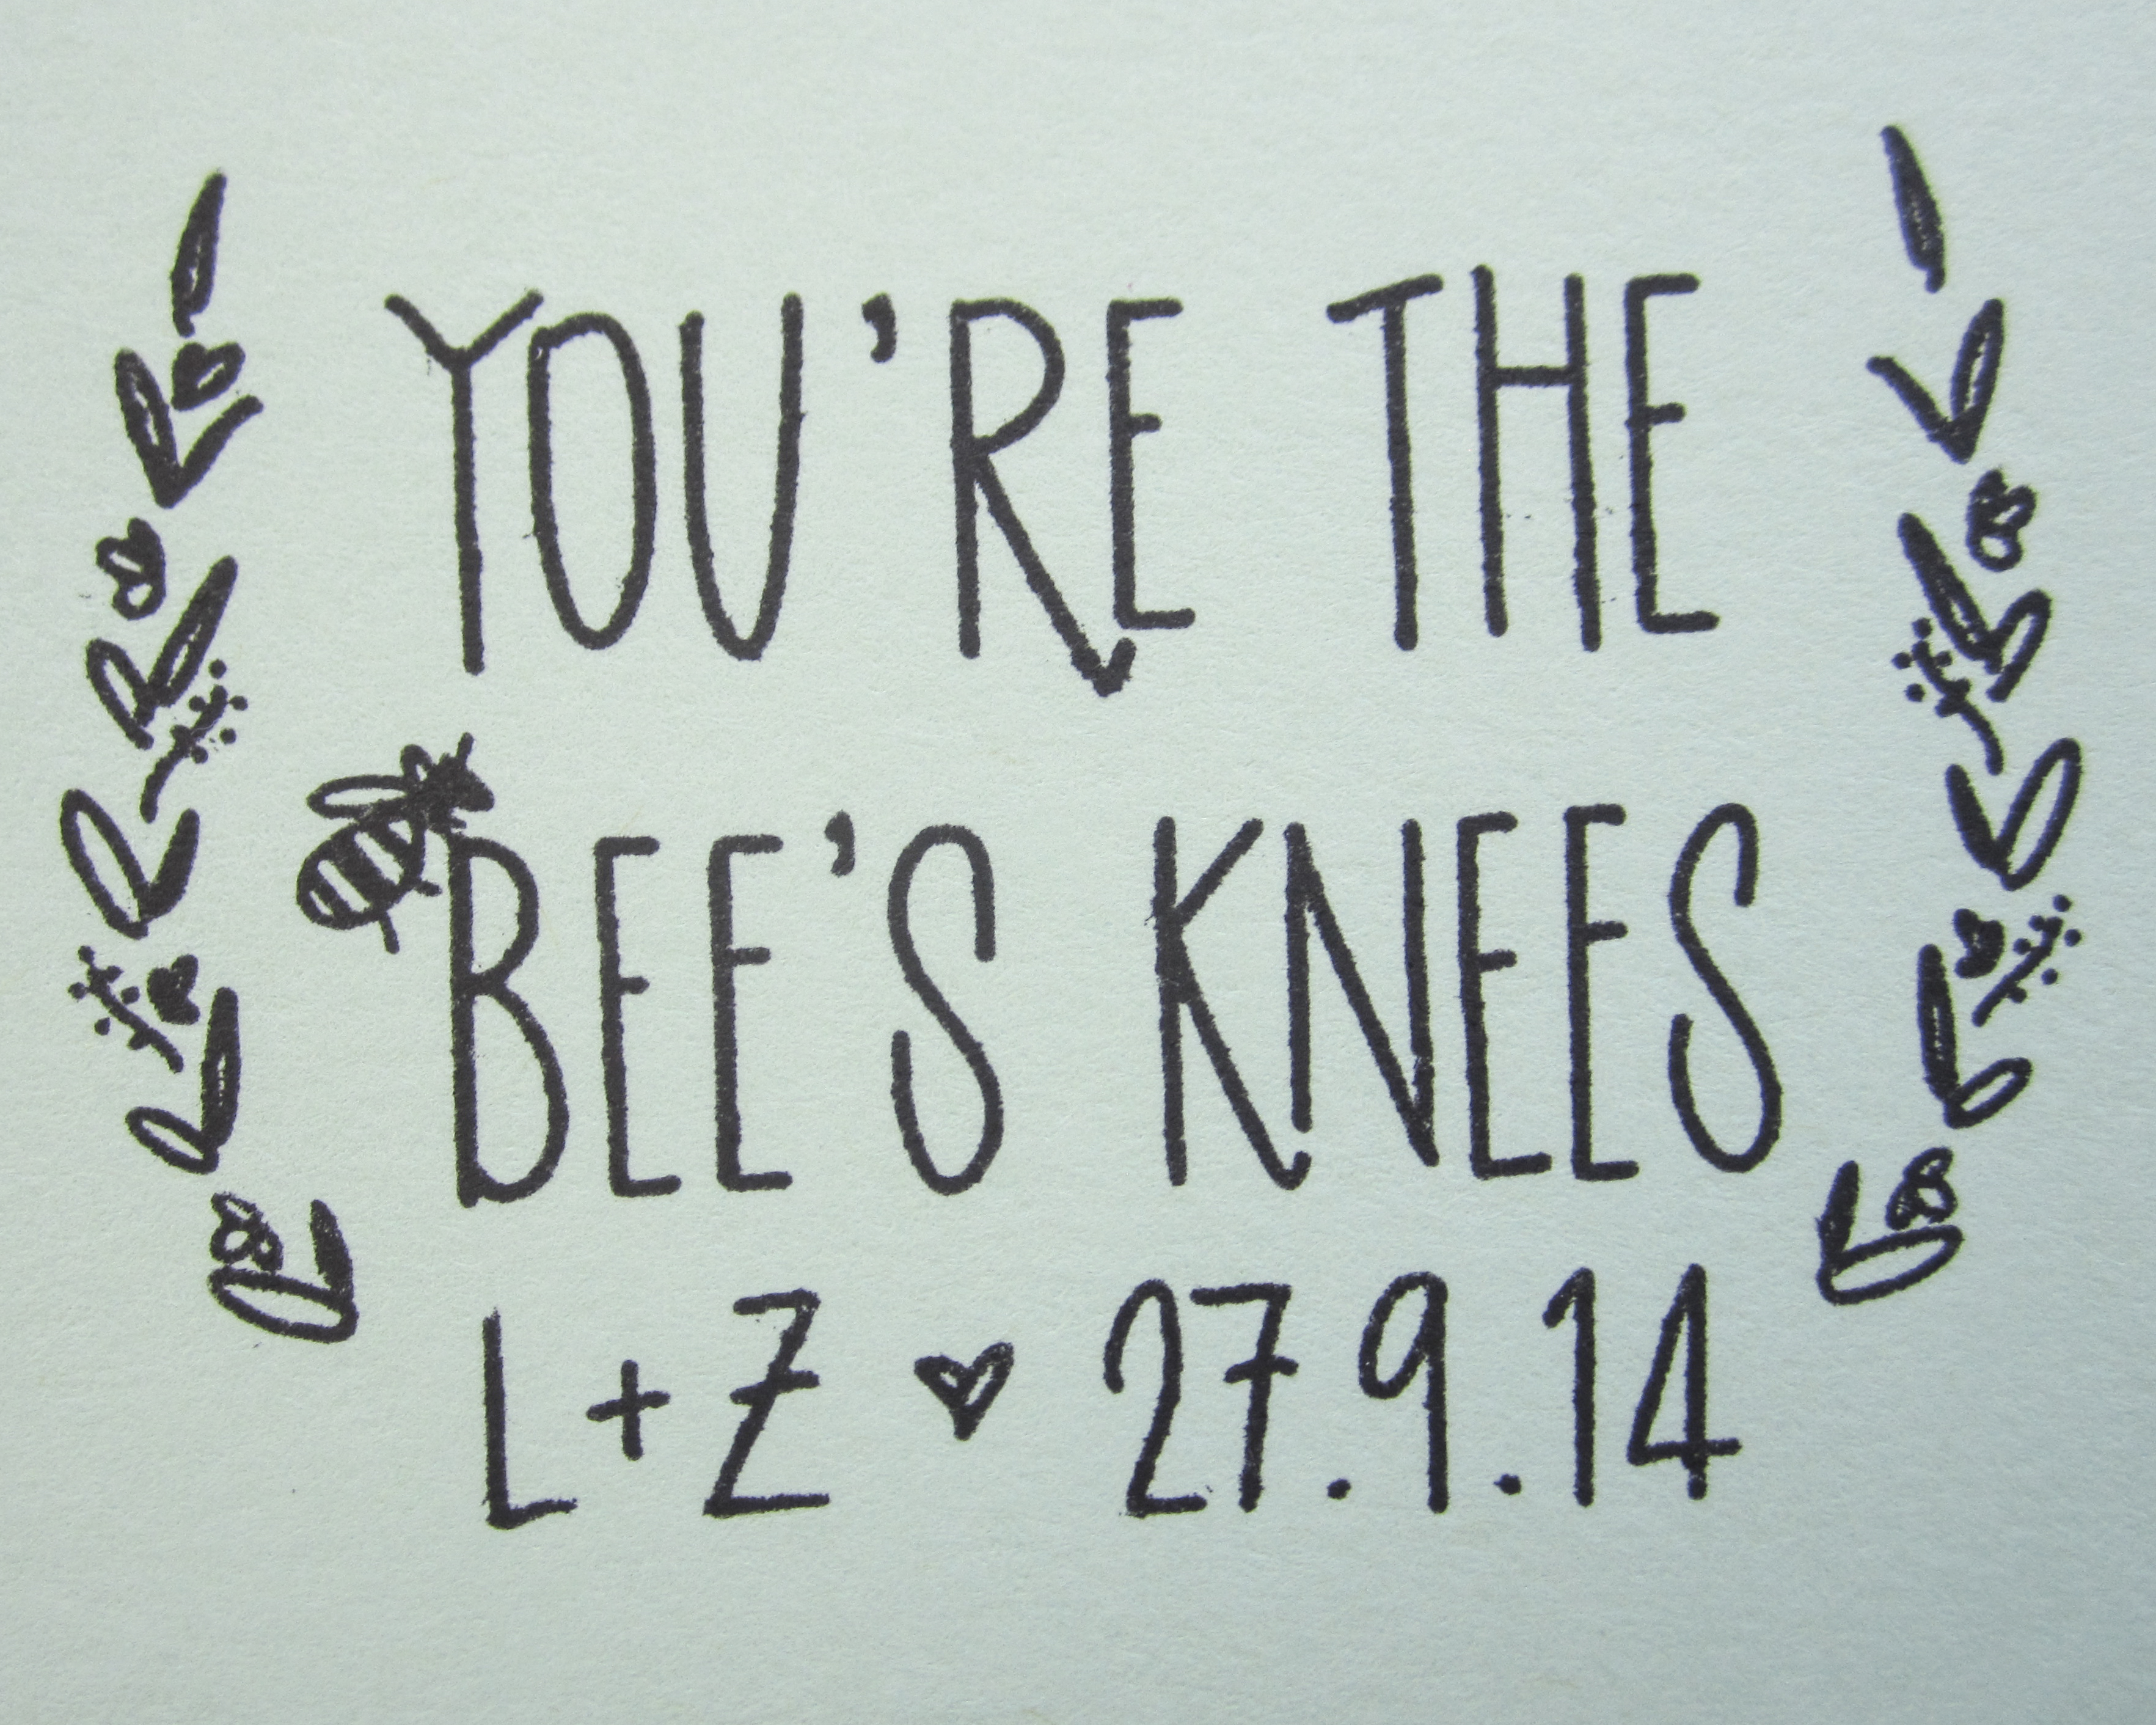 YOU'RE THE
BEE'S KNEES
L+Z ♥ 27.9.14